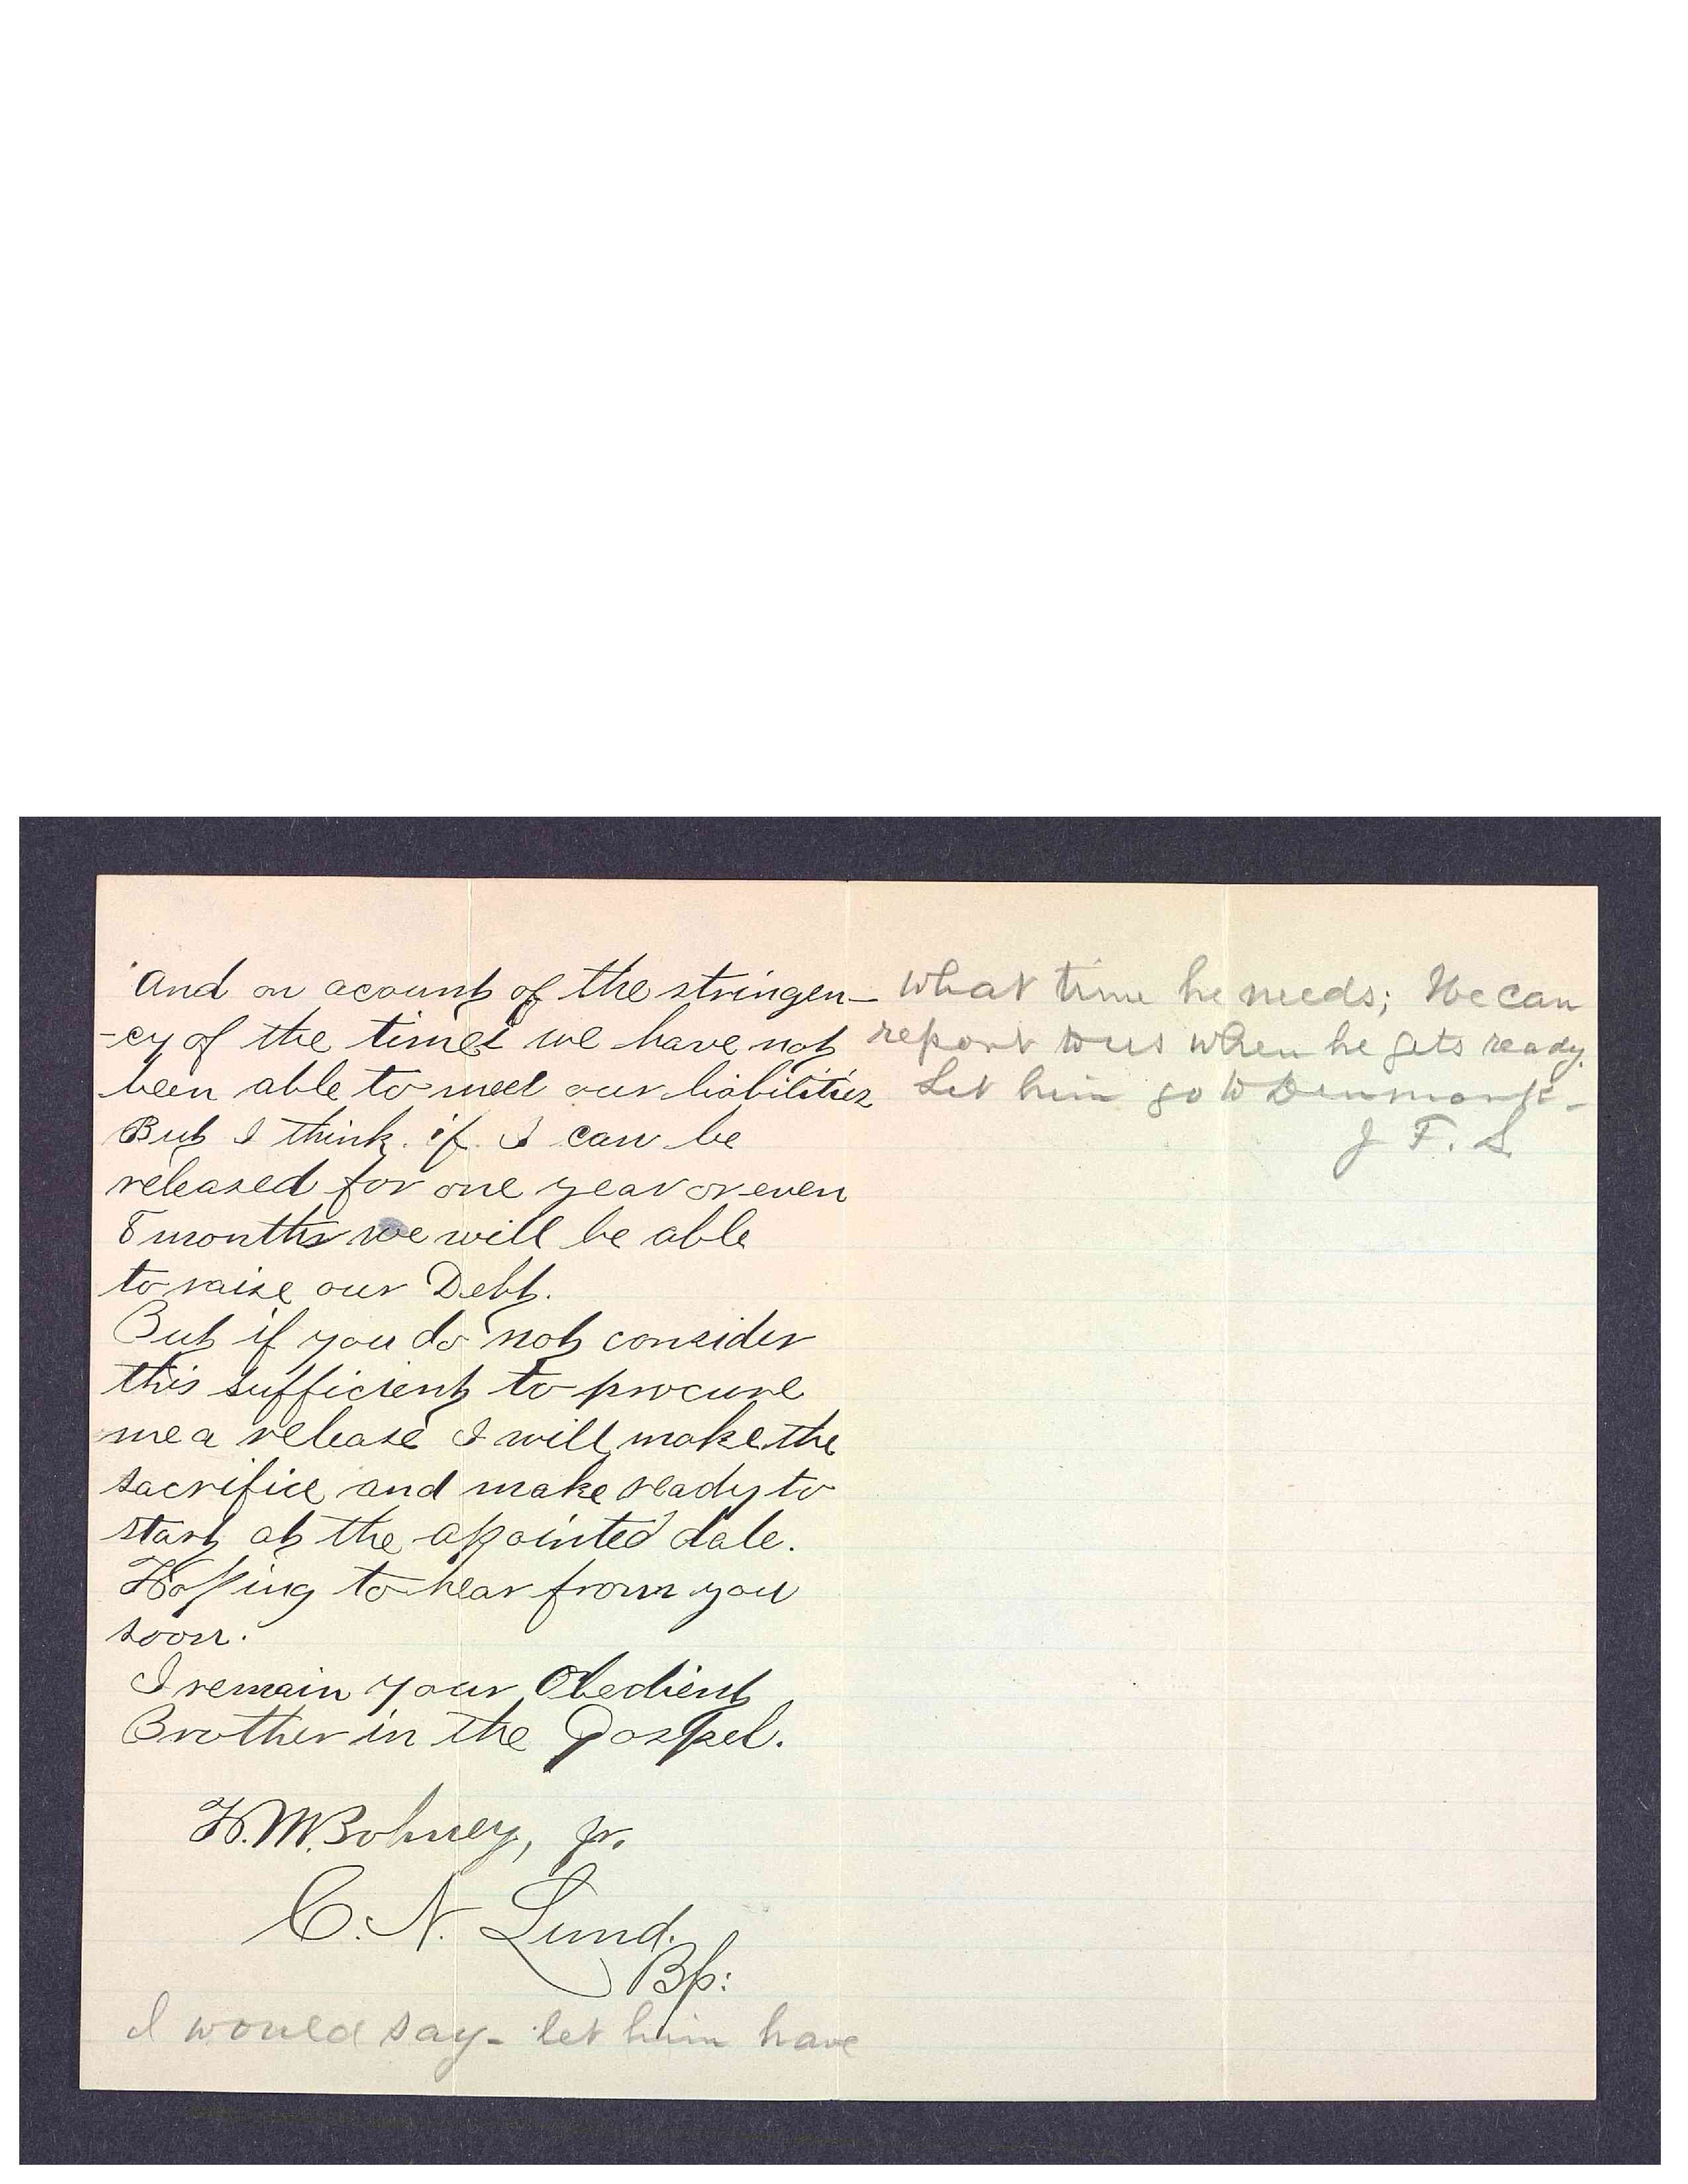 And on acount of the stringen-
-cy of the times we have not
been able to meet our liabilities
But I think if I can be
released for one year or even
8 months we will be able
to raise our Debt.
But if you do not consider
this sufficient to procure
me a release I will make the
sacrifice and make ready to
start at the apointed date.
Hoping to hear from you
soon.
I remain your Obedient
Brother in the Gospel.
H. M. Bohney, Jr.
C. N. Lund.
Bp:
I would say - let him have
what time he needs; He can
report to us when he gets ready.
Let him go to Denmark -
J F. S.